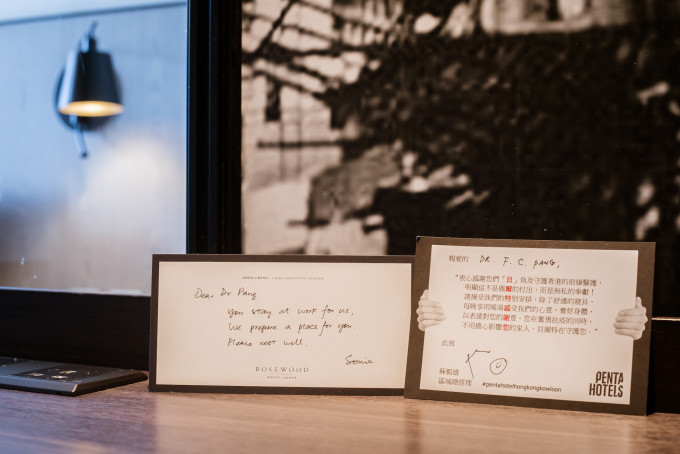 SONIA CHENG · CHIEF EXECUTIVE OFFICER
Dear Dr Pang
You stay at work for us,
We prepare a place for you.
Please rest well.
Sonia
ROSEWOOD
HOTEL GROUP
親愛的 DR. F. C. PANG,
"衷心感謝您們「貝」負及守護香港的前線醫護,
明瞭這不是偶爾的付出,而是無私的奉獻!
請接受我們的特別安排,除了舒適的寢具,
每晚享用暖湯感受我們的心意,養好身體,
以表達對您的謝意。您在奮勇抗疫的同時,
不用擔心影響您的家人,貝爾特在守護您。"
此致
區域總經理
#pentahotelhongkongkowloon
PENTA
HOTELS